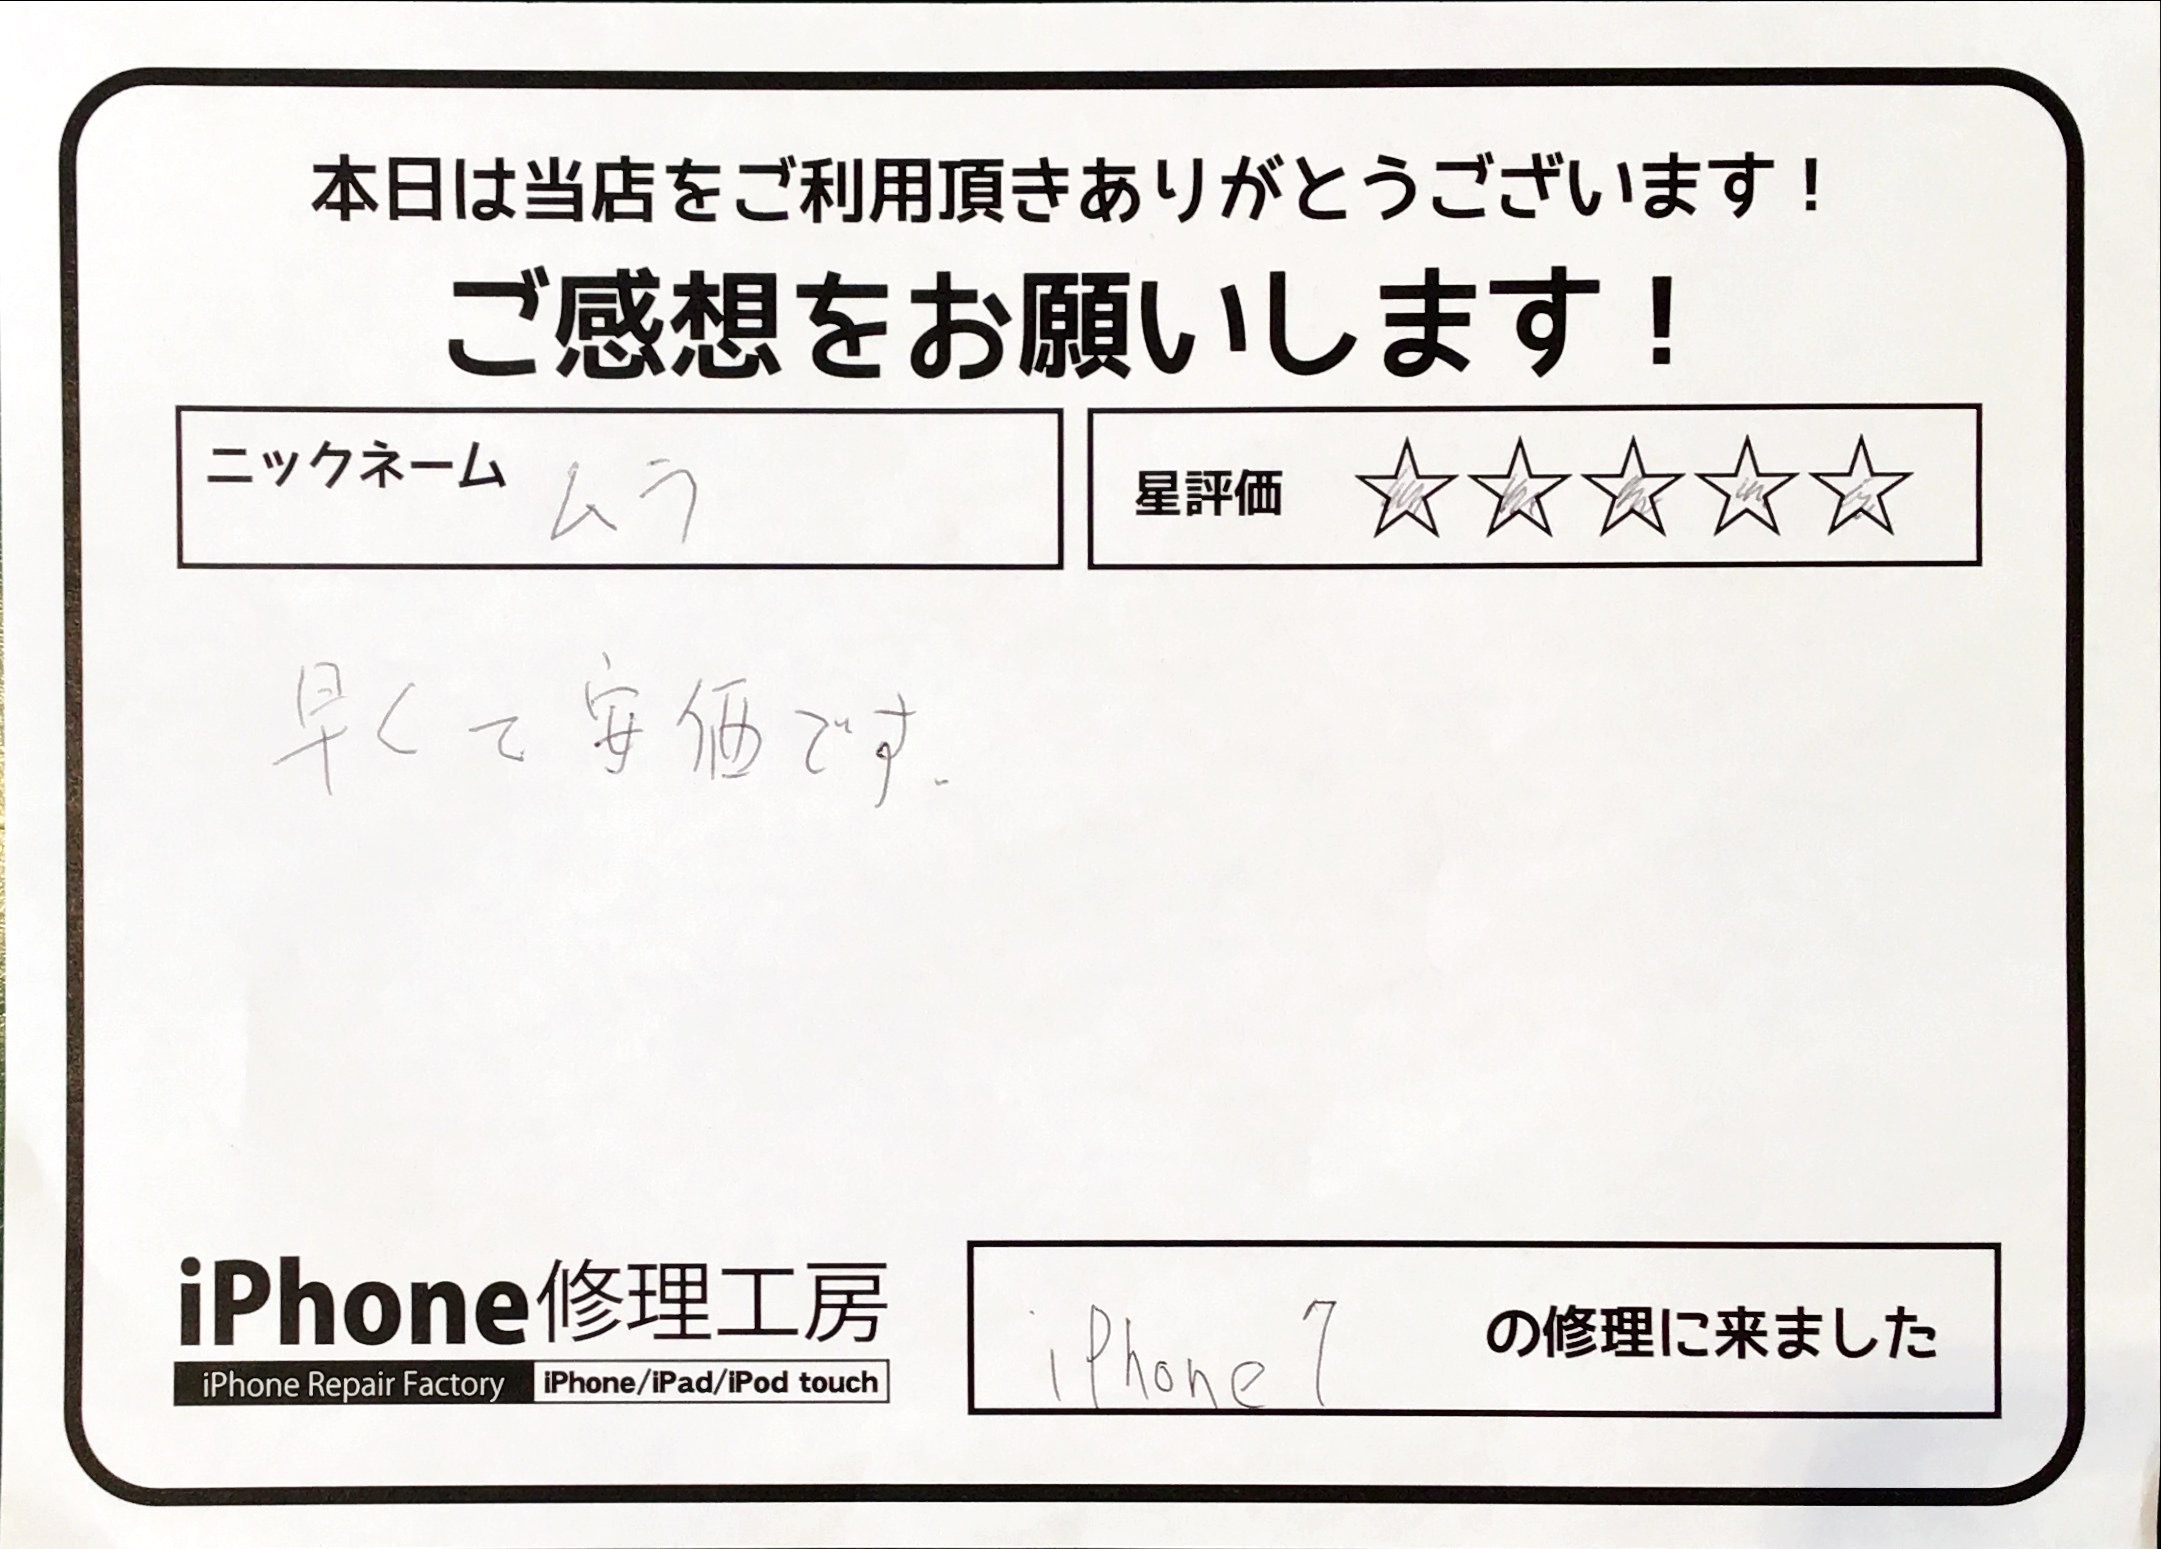 本日は当店をご利用頂きありがとうございます！
ご感想をお願いします！
ニックネーム ムラ
星評価 ☆☆☆☆☆
早くて安価です.
iPhone修理工房
iPhone Repair Factory iPhone/iPad/iPod touch
iPhone7 の修理に来ました